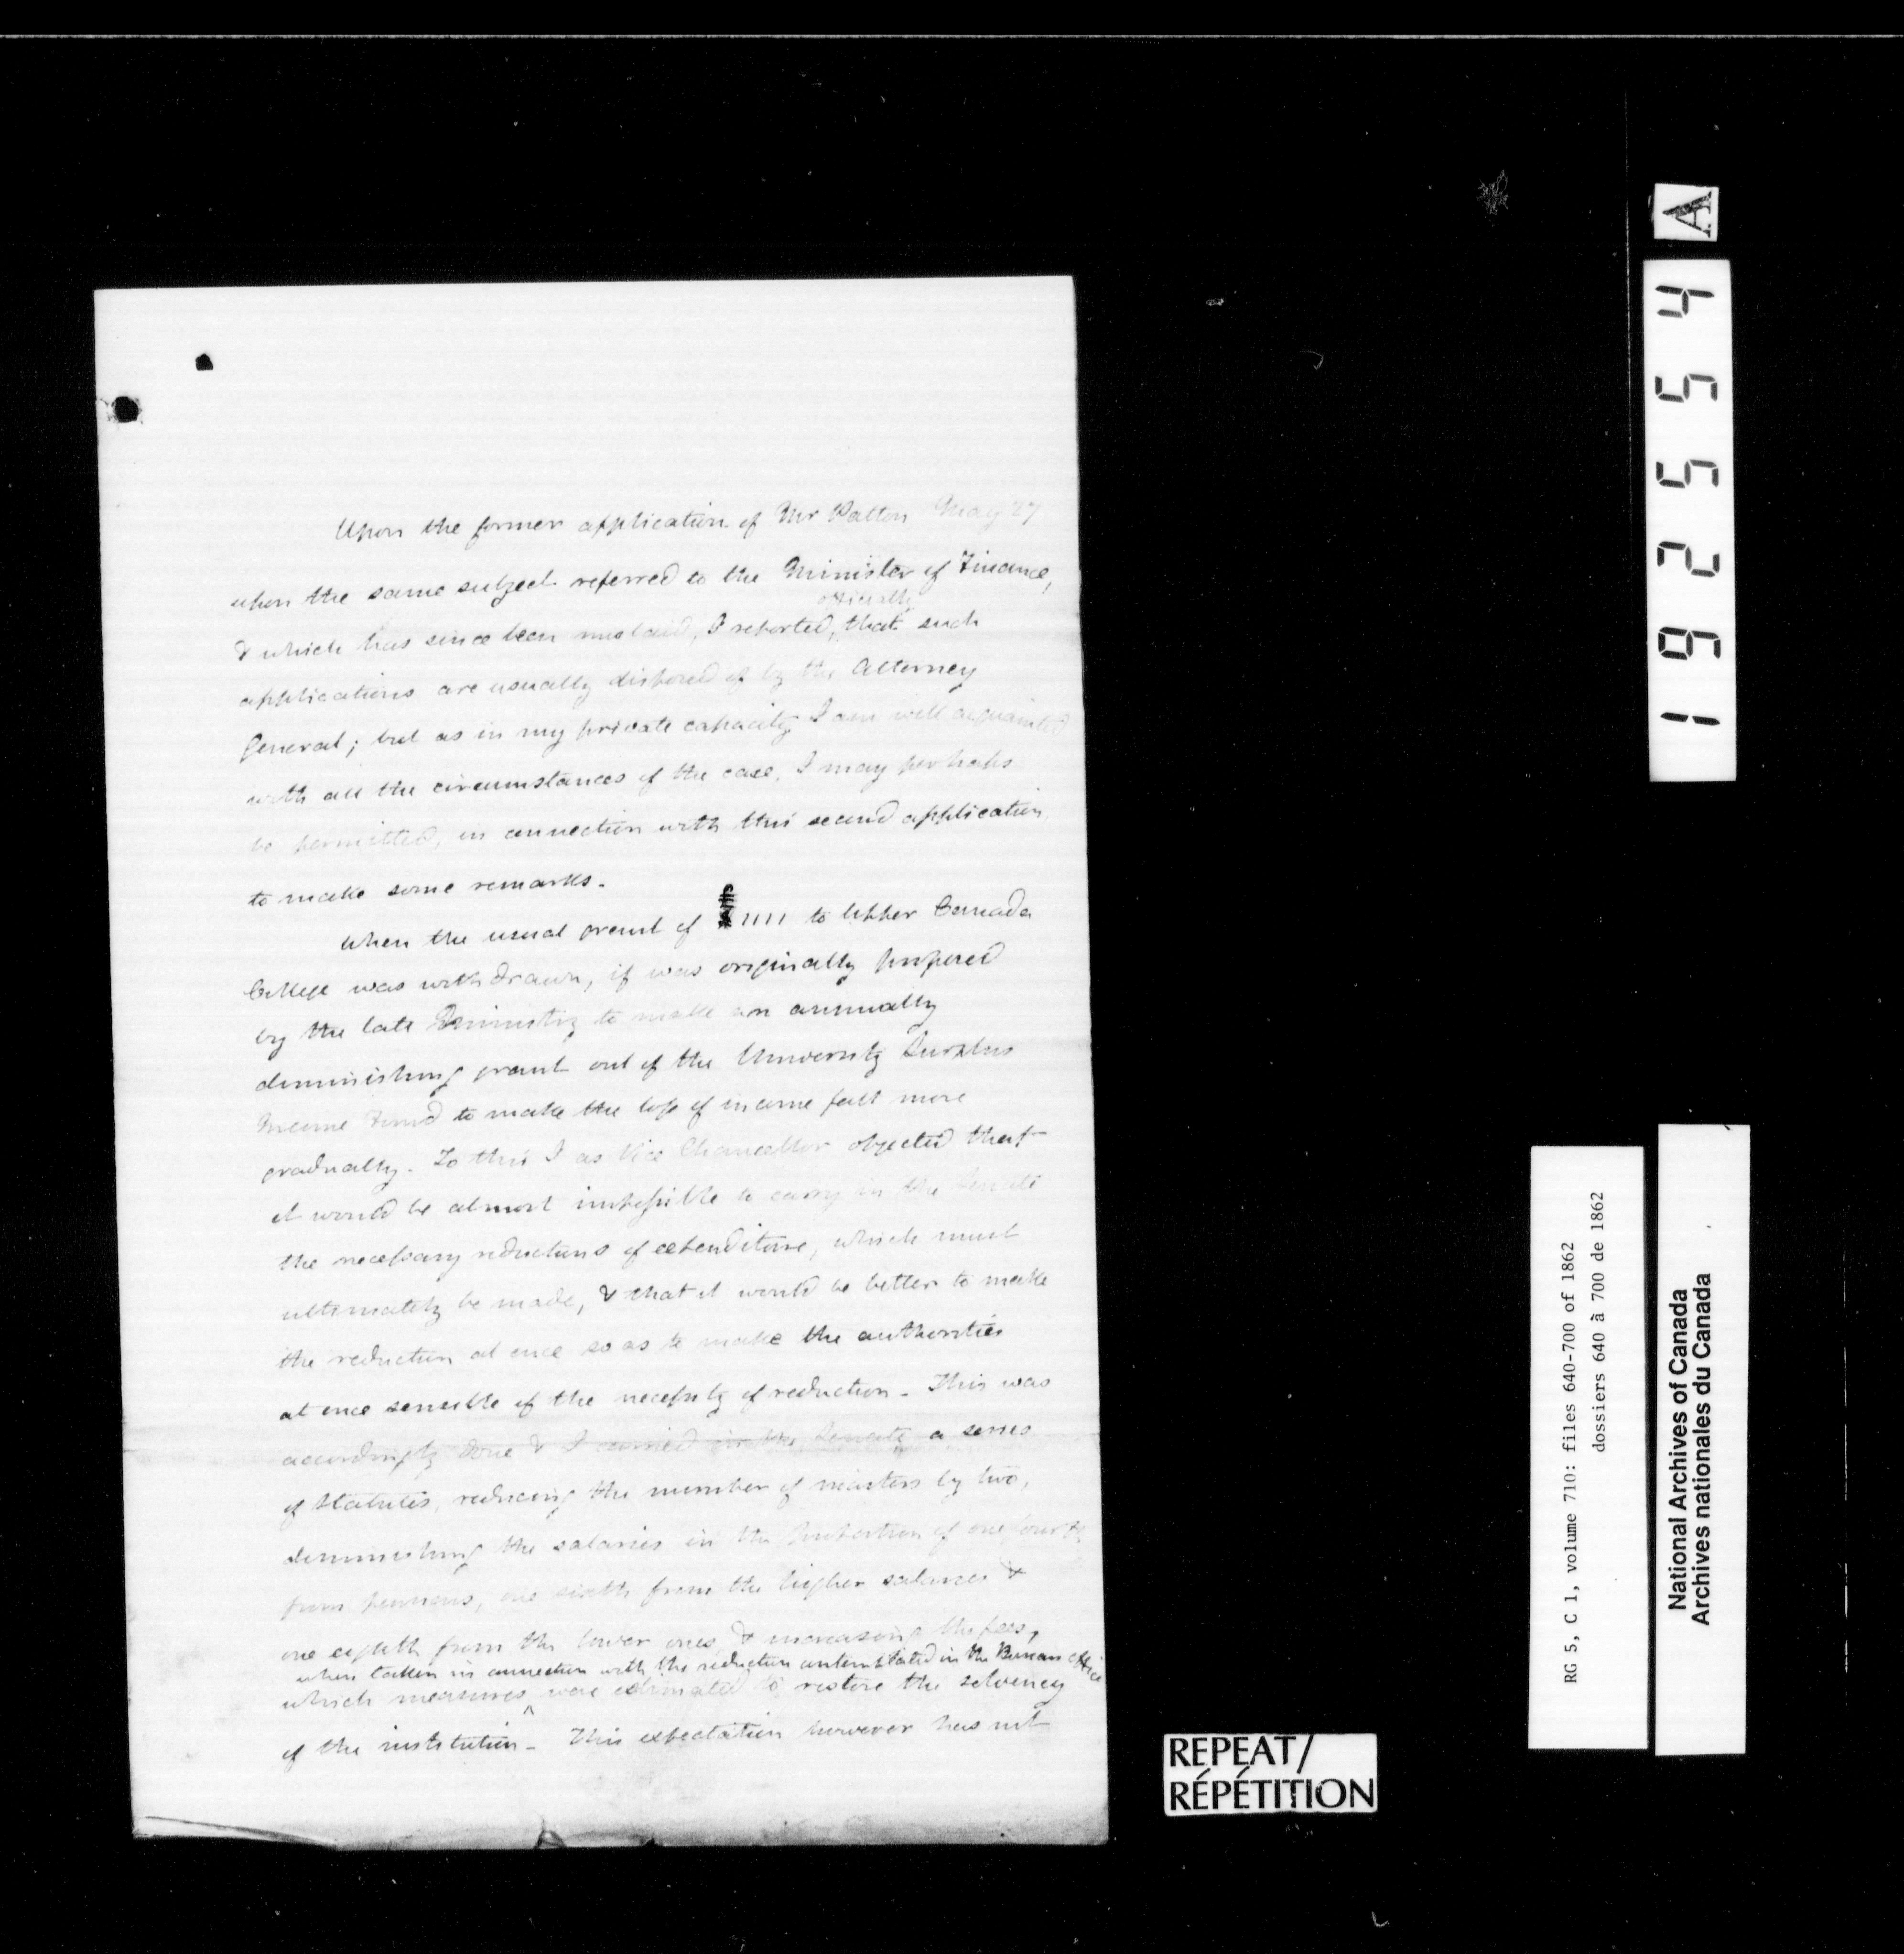 Upon the former application of Mr Patton May 27
upon the same subject referred to the Minister of Finance,
officially
& which has since been mislaid, I reported, that such
applications are usually disposed of by the Attorney
General; but as in my private capacity I am well acquainted
with all the circumstances of the case, I may perhaps
be permitted, in connection with this second application,
to make some remarks.
When the usual grant of 1111 to Upper Canada
College was withdrawn, it was originally proposed
by the late Ministry to make an annually
diminishing grant out of the University Surplus
Income Fund to make the loss of income fall more
gradually. To this I as Vice Chancellor objected that
it would be almost impossible to carry in the Senate
the necessary reductions of expenditure, which must
ultimately be made, & that it would be better to make
the reduction at once so as to make the authorities
at once sensible of the necessity of reduction. This was
accordingly done & I carried in the Senate a series
of Statutes, reducing the number of masters by two,
diminishing the salaries in the proportion of one fourth
from pensions, one sixth from the higher salaries &
one eighth from the lower ones & increasing the fees,
when taken in connection with the reduction contemplated in the Bursar's Office
which measures were estimated to restore the solvency
of the institution. This expectation however has not
A
1 9 2 5 5 4
RG 5, C 1, volume 710: files 640-700 of 1862
dossiers 640 à 700 de 1862
National Archives of Canada
Archives nationales du Canada
REPEAT/
RÉPÉTITION